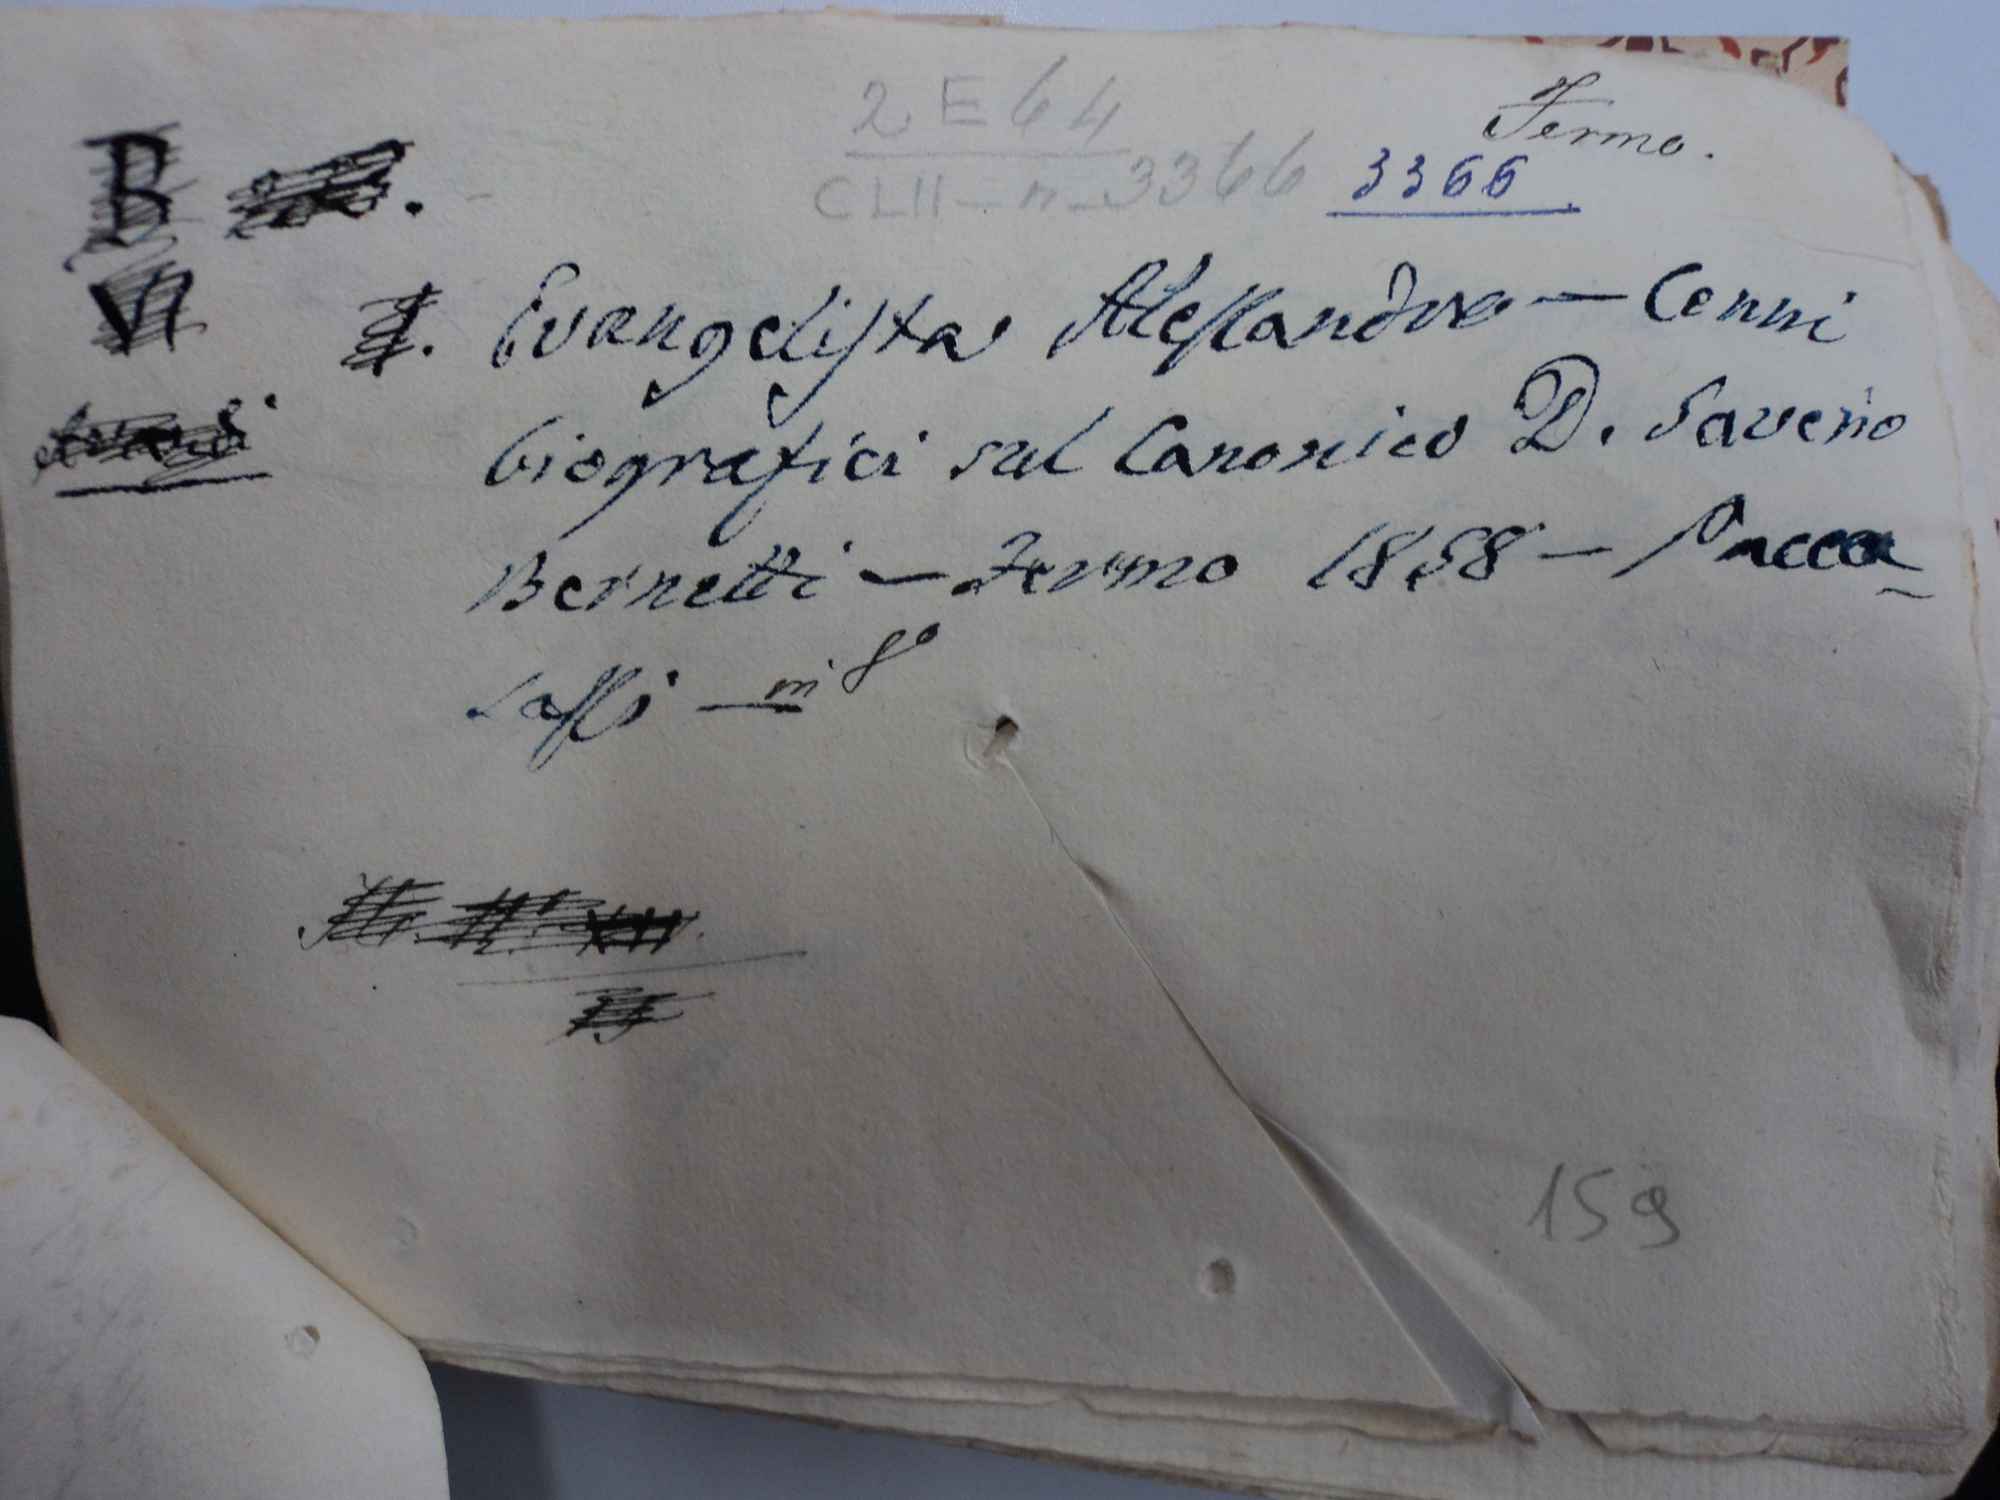 2 E 64
Fermo.
CLII - n - 3366 3366
B
VI
Evangelista Alessandro — Cenni
biografici sul Canonico D. Saverio
Bernetti — Fermo 1858 — Pacca-
sassi — in 8º
159